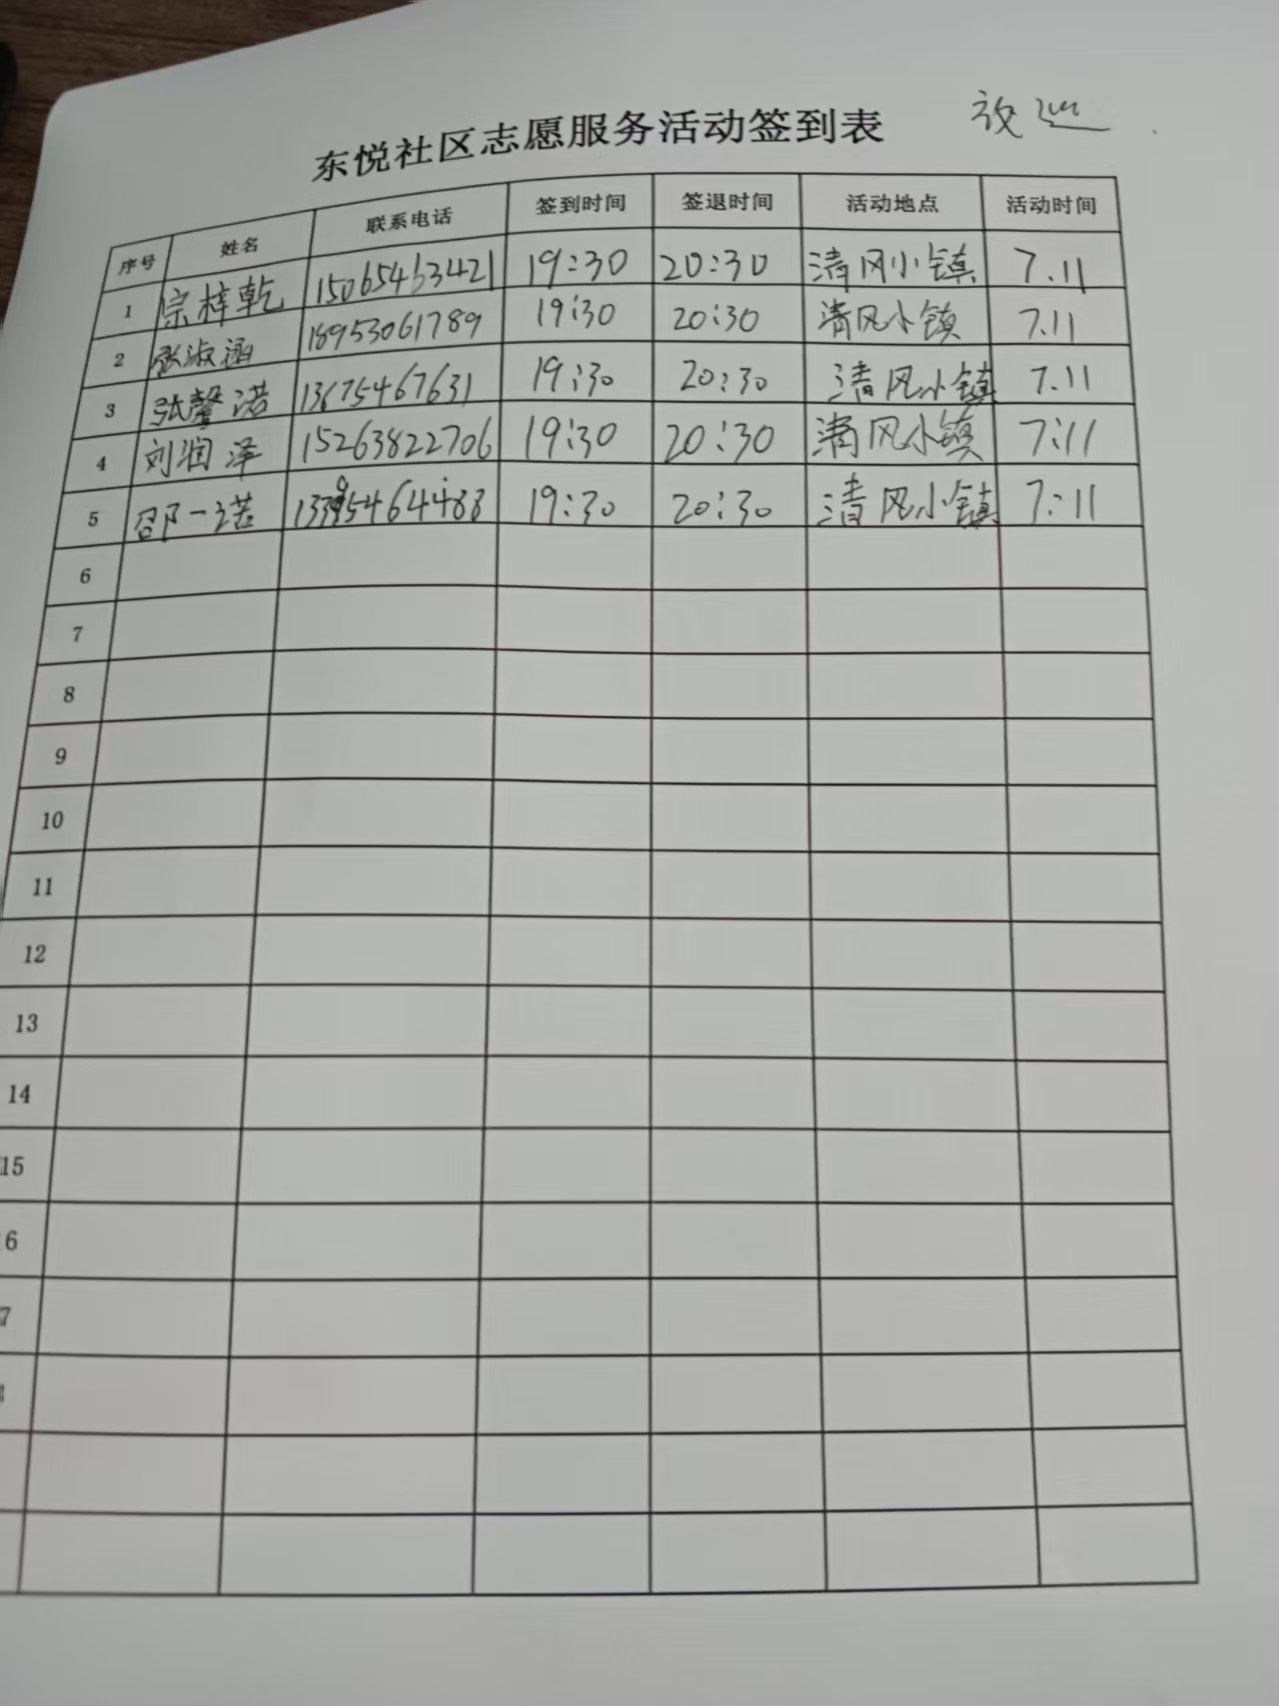 东悦社区志愿服务活动签到表
序号 姓名 联系电话 签到时间 签退时间 活动地点 活动时间
1 宗梓乾 15065463421 19:30 20:30 清风小镇 7.11
2 张淑涵 18953061789 19:30 20:30 清风小镇 7.11
3 张馨诺 13675467631 19:30 20:30 清风小镇 7.11
4 刘润泽 15263822706 19:30 20:30 清风小镇 7:11
5 邵一诺 19:30 20:30 清风小镇 7:11
6
7
8
9
10
11
12
13
14
15
6
7